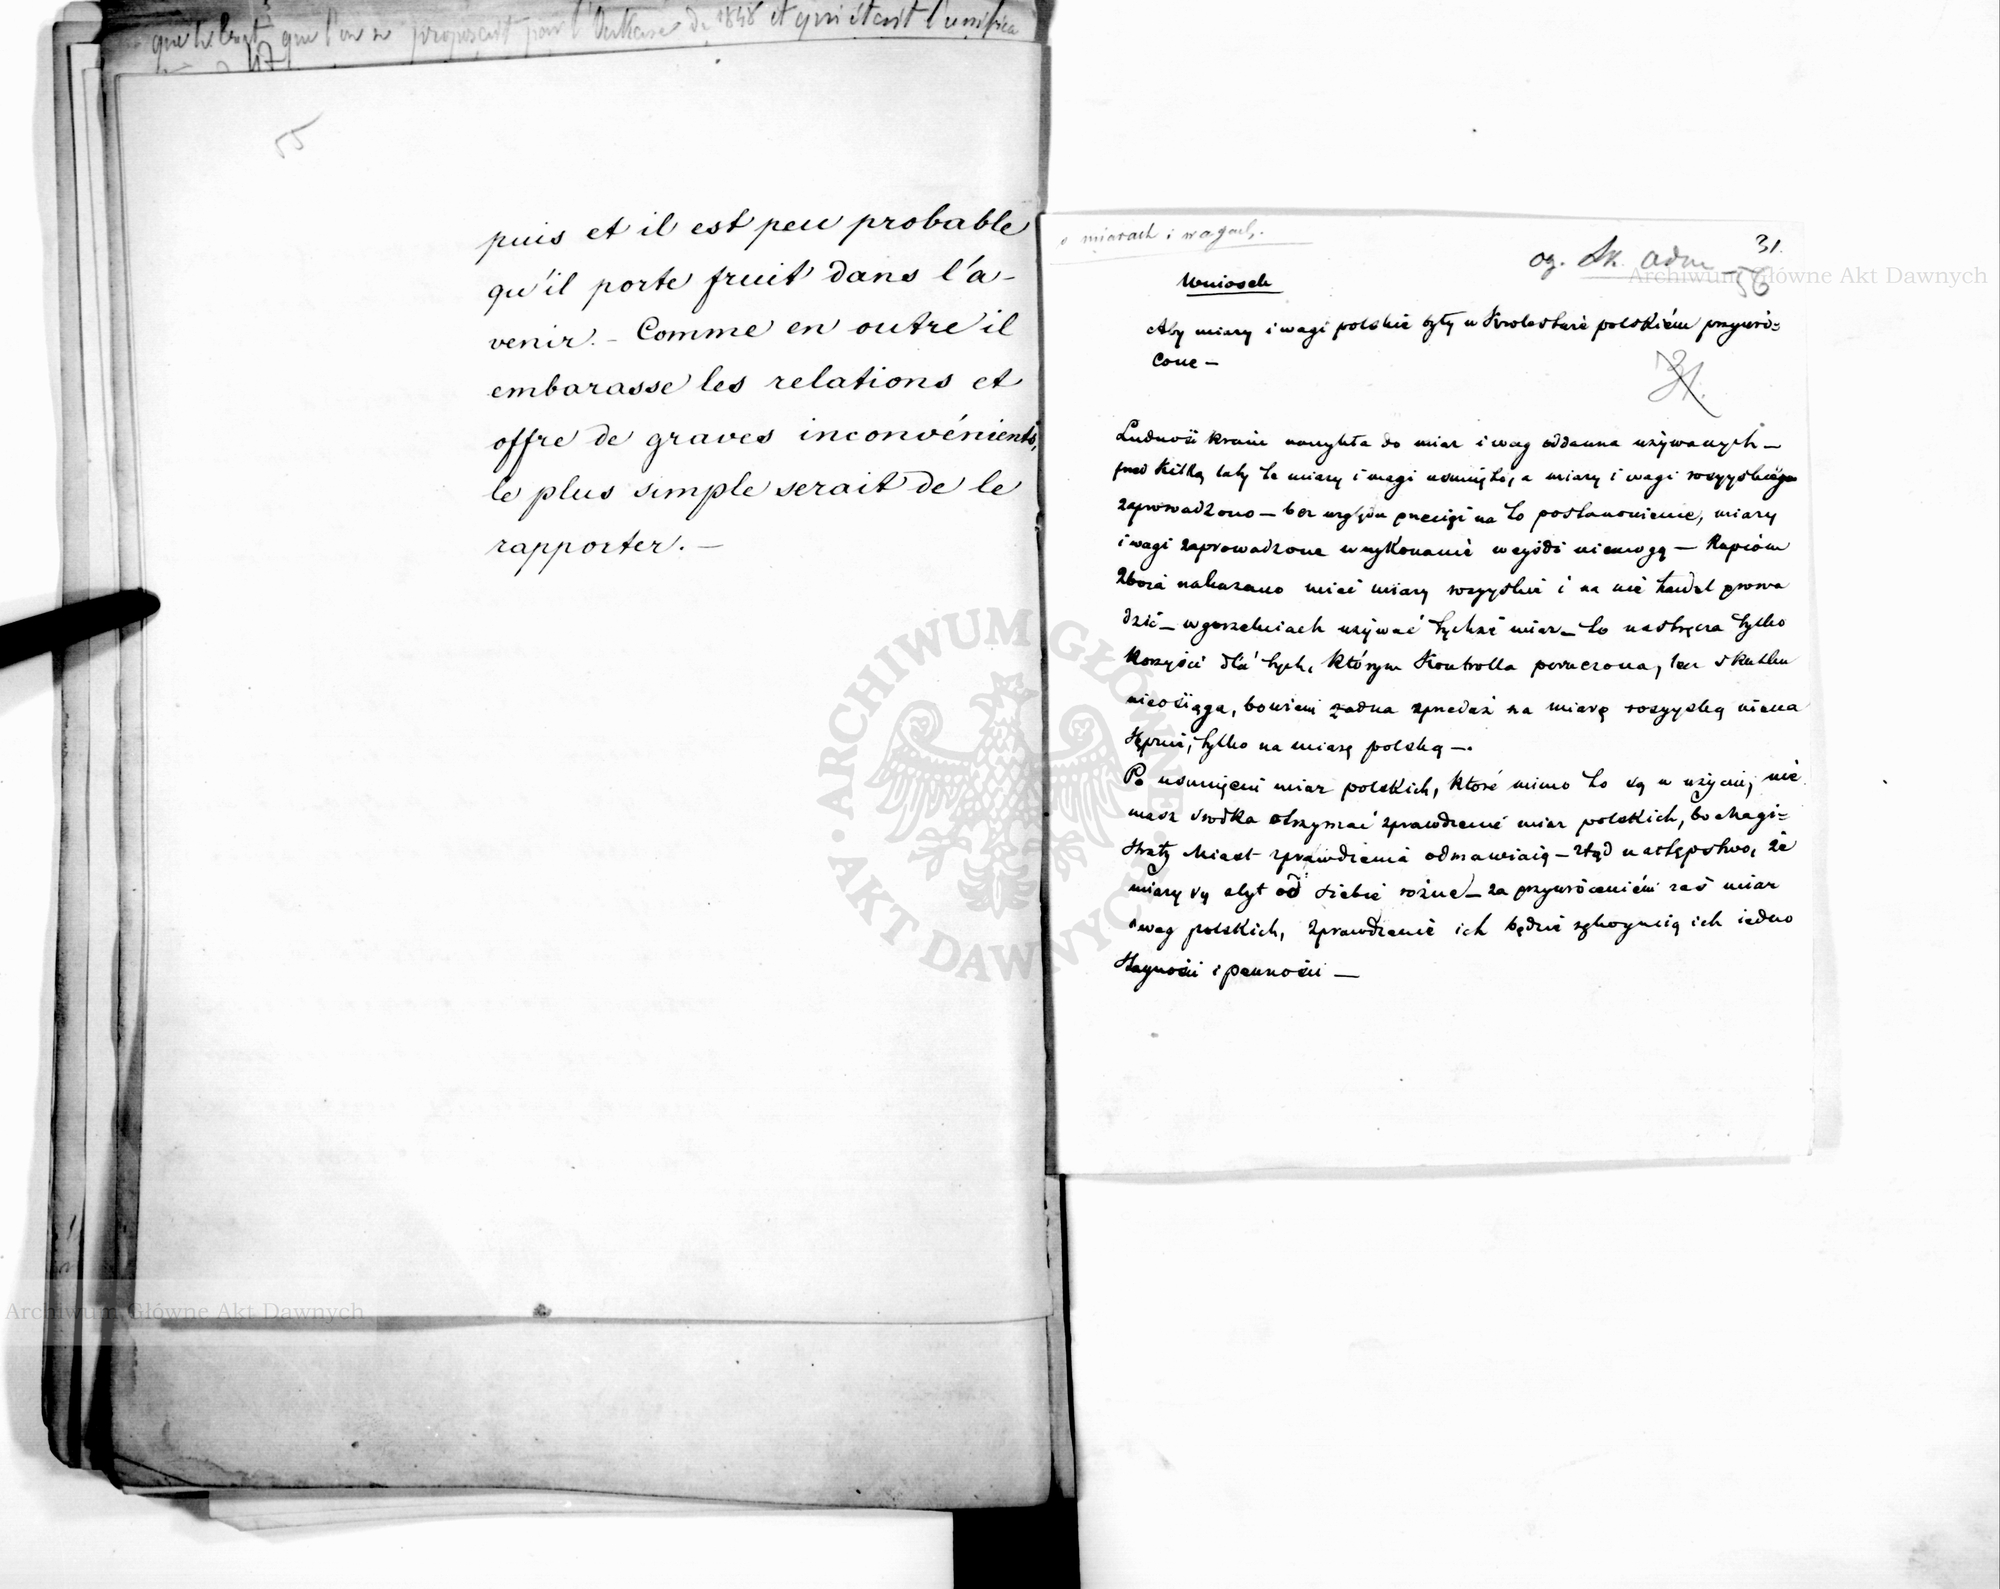 que l'on se proposait par l'Oukase de 1848 et qui était l'unifica
47
55
puis et il est peu probable
qu'il porte fruit dans l'a-
venir. - Comme en outre il
embarasse les relations et
offre de graves inconvénients,
le plus simple serait de le
rapporter. —
o miarach i wagach.
31.
og. Sk. adm
56
Wniosek
Aby miary i wagi polskie były w Krolestwie polskiém przywró=
cone —
31.
Ludność kraiu nawykła do miar i wag oddawna używanych —
przed kilką laty te miary i wagi usunięto, a miary i wagi rossyyskiego
zaprowadzono — bez względu przecięż na to postanowienie, miary
i wagi zaprowadzone w wykonanie weyśdź niemogą — Kupcóm
zboża nakazano mieć miary rossyyskie i na nie handel prowa
dzić — w gorzelniach używać tychże miar — to nastręcza tylko
korzyści dla tych, którym Kontrolla poruczona, lecz skutku
nieosiąga, bowiem żadna zprzedaż na miarę rossyyską niena
stępuie, tylko na miarę polską —.
Po usunięciu miar polskich, które mimo to są w użyciu, nie
masz środka otrzymać sprawdzenie miar polskich, bo Magi=
straty Miast sprawdzenia odmawiaią — ztąd następstwo, że
miary są zbyt od siebie różne — za przywróceniem zaś miar
i wag polskich, sprawdzenie ich będzie rękoymią ich iedno
stayności i pewności —
ARCHIWUM GŁÓWNE AKT DAWNYCH
Archiwum Główne Akt Dawnych
Archiwum Główne Akt Dawnych